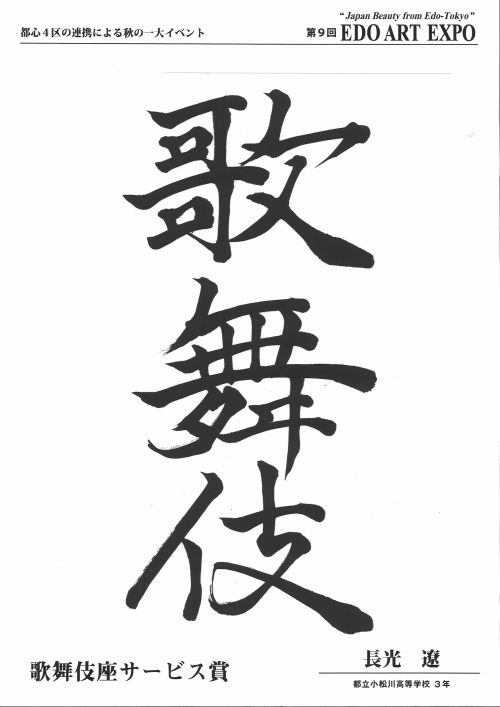 都心4区の連携による秋の一大イベント
"Japan Beauty from Edo-Tokyo"
第9回 EDO ART EXPO
歌舞伎
歌舞伎座サービス賞
長光 遼
都立小松川高等学校 3年